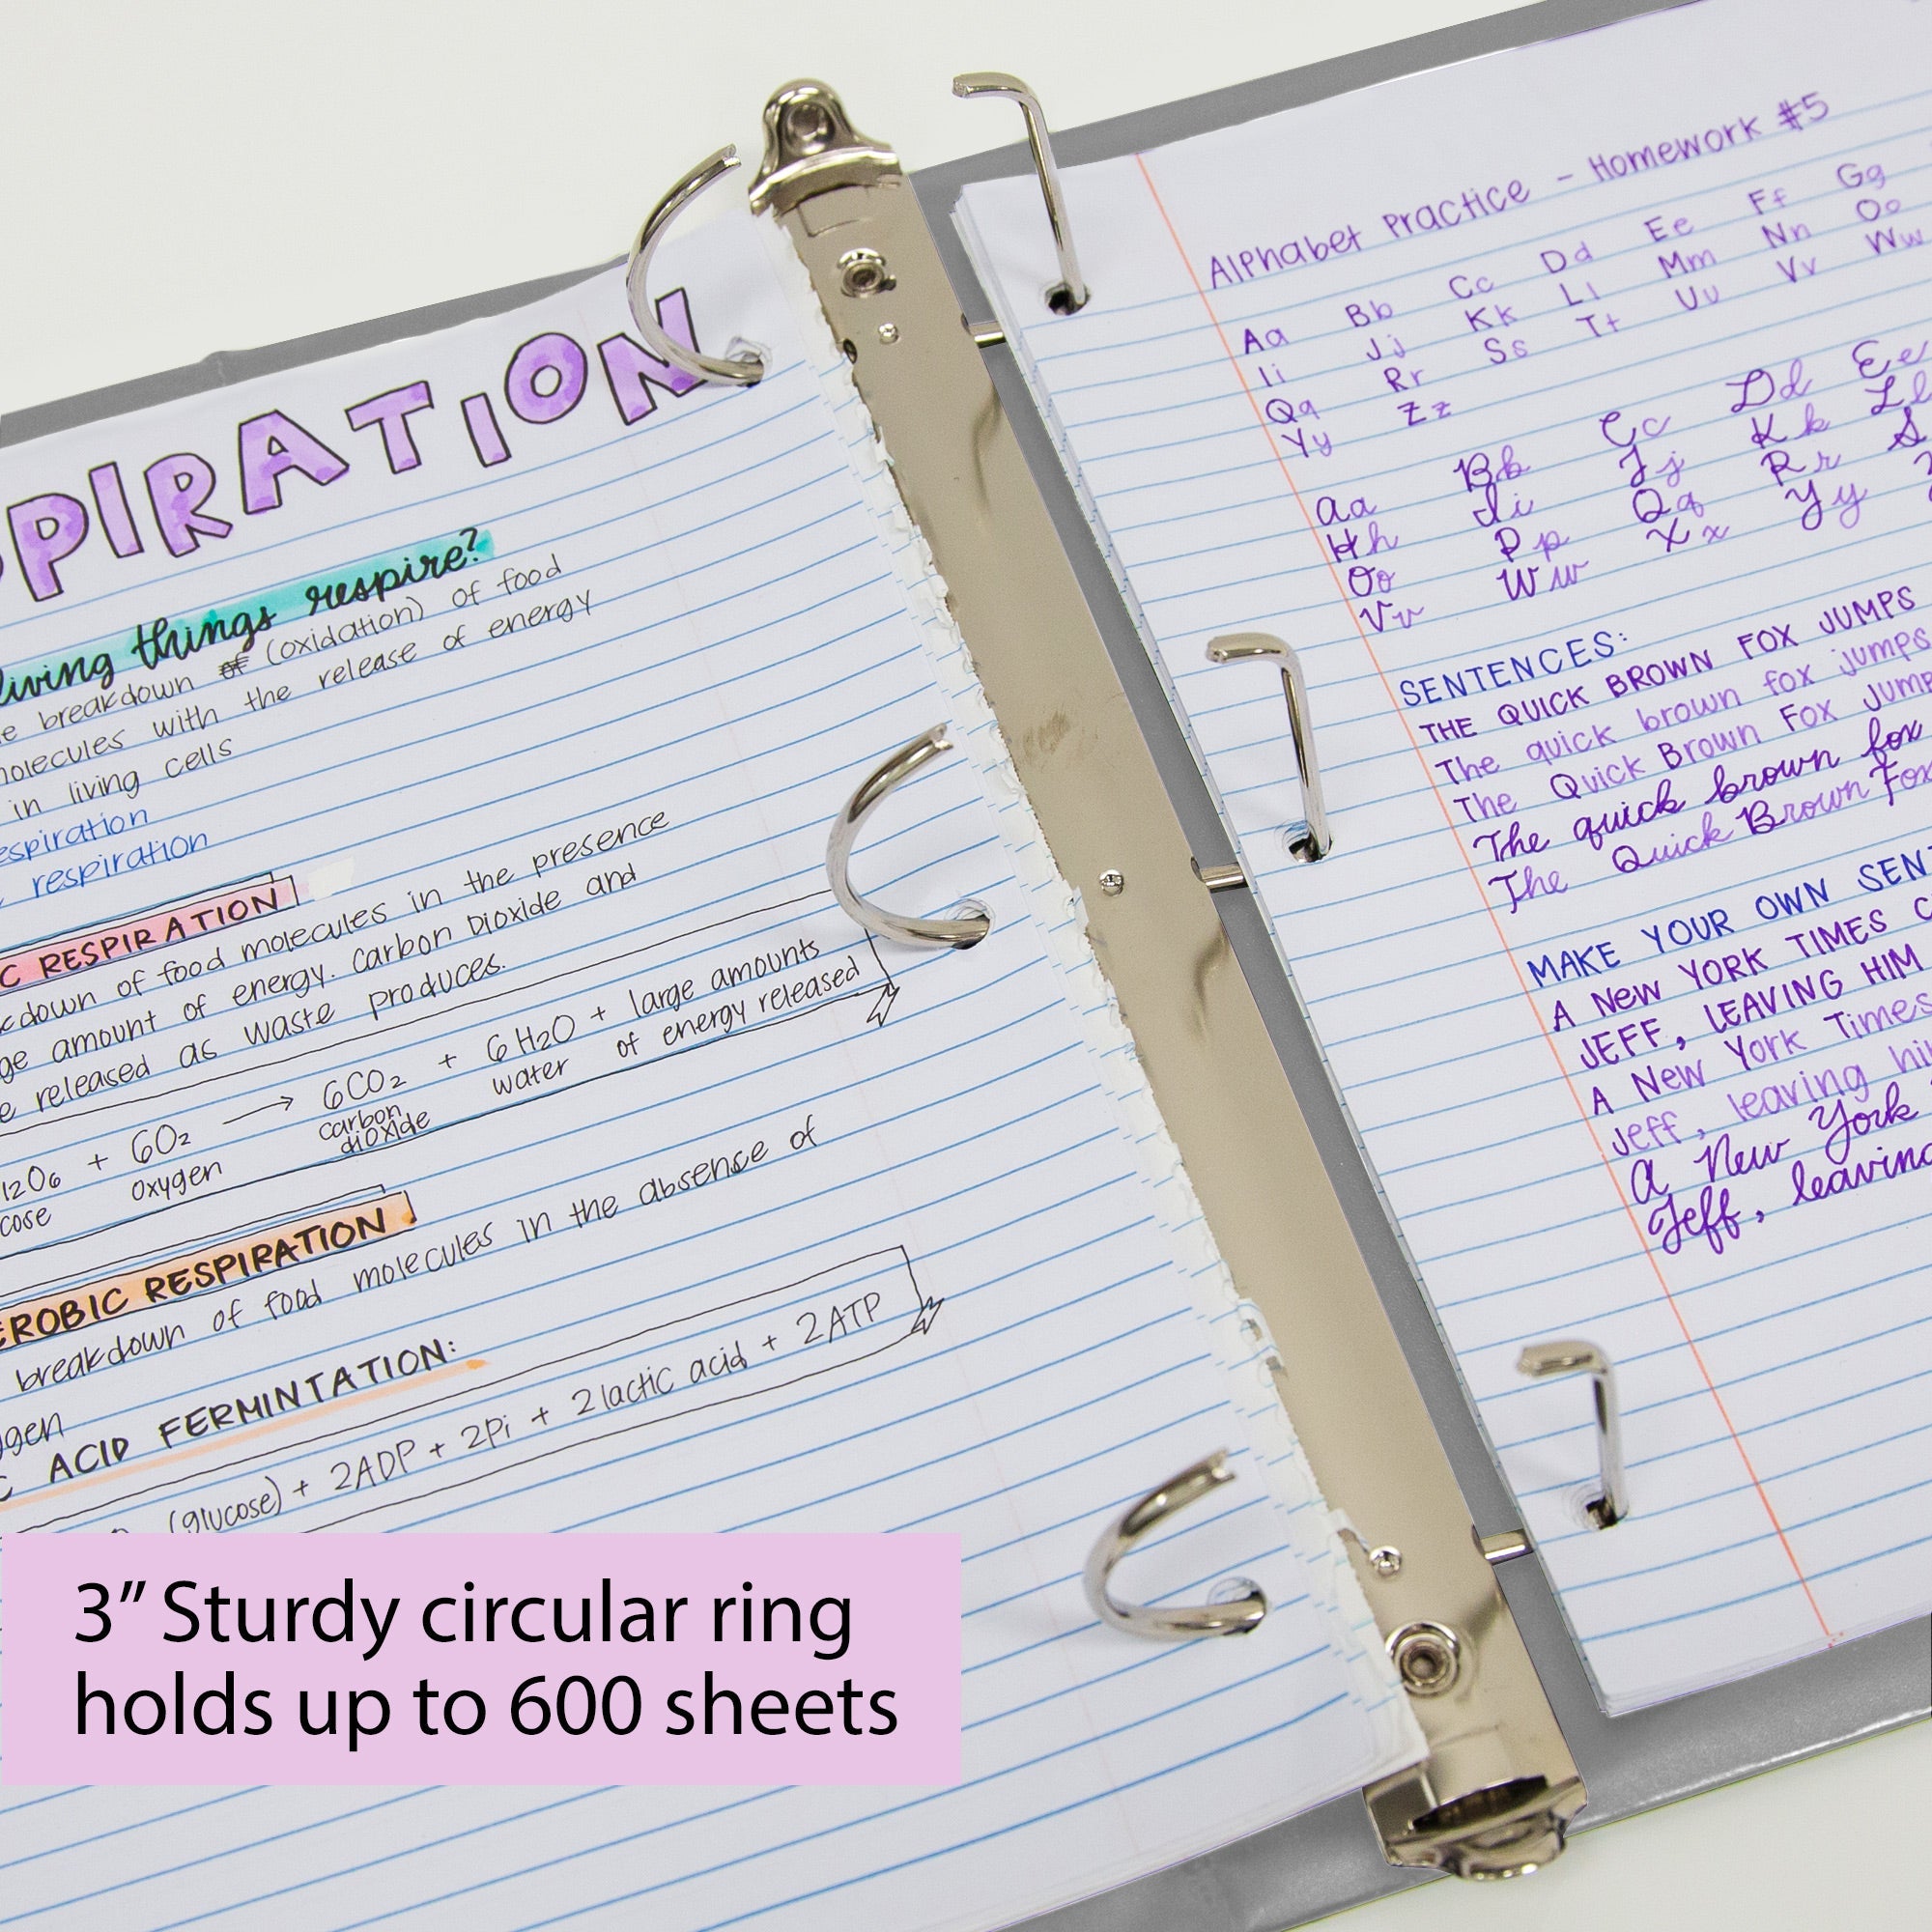 PIRATION
living things respire?
breakdown of (oxidation) of food
molecules with the release of energy
in living cells
respiration
respiration
C RESPIRATION
kdown of food molecules in the presence
ge amount of energy. Carbon Dioxide and
e released as waste produces.
12O6 + 6O2 → 6CO2 + 6H2O + large amounts
cose oxygen carbon dioxide water of energy released
EROBIC RESPIRATION
breakdown of food molecules in the absence of
ygen
C ACID FERMINTATION:
(glucose) + 2ADP + 2Pi + 2 lactic acid + 2ATP
Alphabet Practice - Homework #5
Aa Bb Cc Dd Ee Ff Gg
Ii Jj Kk Ll Mm Nn Oo
Qq Rr Ss Tt Uu Vv Ww
Yy Zz
Aa Bb Cc Dd Ee
Hh Ii Jj Kk Ll
Oo Pp Qq Rr S
Vv Ww Xx Yy
SENTENCES:
THE QUICK BROWN FOX JUMPS
The quick brown fox jumps
The Quick Brown Fox Jump
The quick brown fox
The Quick Brown Fox
MAKE YOUR OWN SENT
A NEW YORK TIMES C
JEFF, LEAVING HIM
A New York Times
Jeff, leaving hi
A New York
Jeff, leaving
3” Sturdy circular ring
holds up to 600 sheets